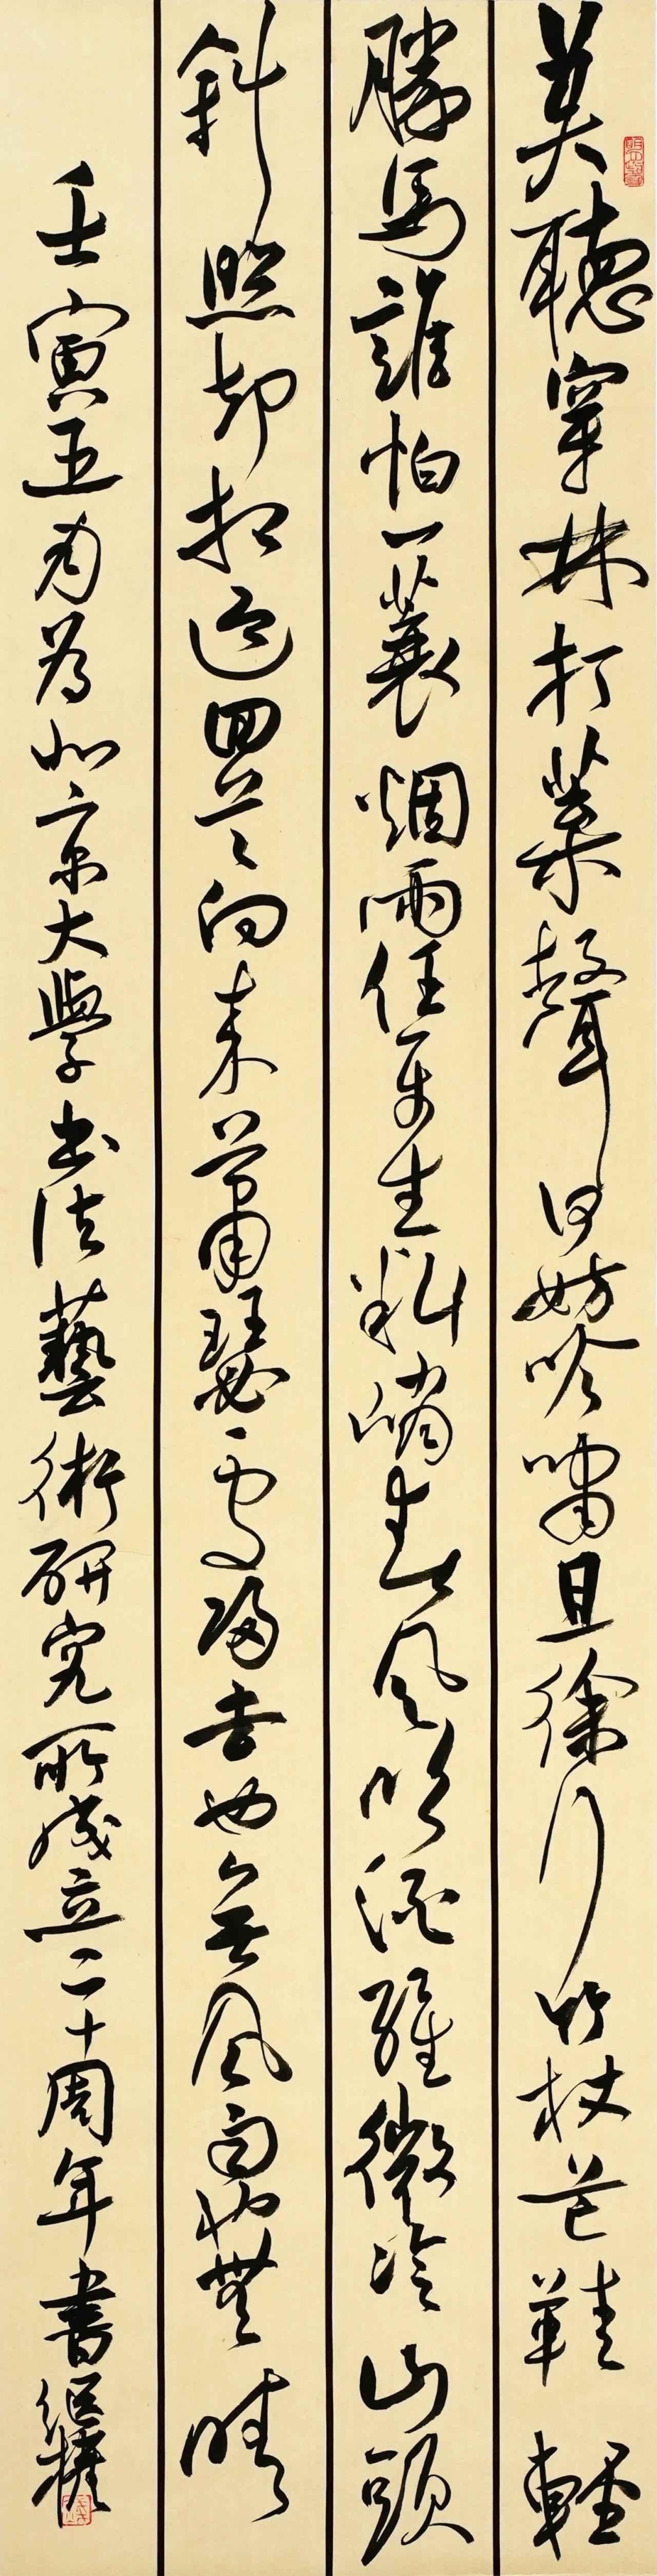 莫聽穿林打葉聲何妨吟嘯且徐行竹杖芒鞋輕
勝馬誰怕一蓑烟雨任平生料峭春風吹酒醒微冷山頭
斜照却相迎回首向来蕭瑟處歸去也無風雨也無晴
壬寅五月為北京大學书法藝術研究所成立二十周年書